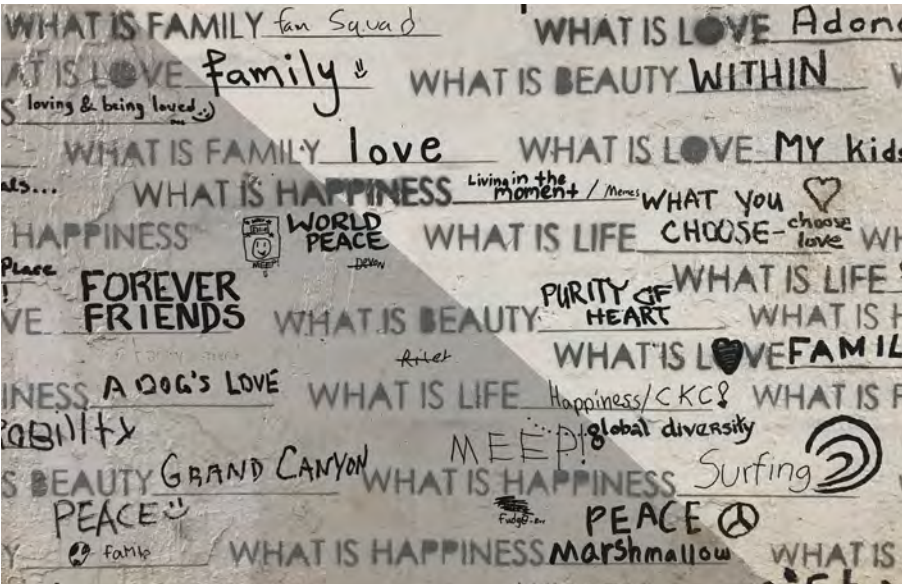 WHAT IS FAMILY fan Squad WHAT IS LOVE Adon
AT IS LOVE family WHAT IS BEAUTY WITHIN
S loving & being loved
WHAT IS FAMILY love WHAT IS LOVE MY kids
als...
WHAT IS HAPPINESS Living in the moment / Memes
HAPPINESS WORLD PEACE WHAT IS LIFE WHAT YOU CHOOSE - choose love WH
MEEP!
Devon
Place
! FOREVER FRIENDS
WHAT IS LIFE
VE WHAT IS BEAUTY PURITY OF HEART WHAT IS H
Riley
WHAT IS LOVE FAMIL
INESS A DOG'S LOVE WHAT IS LIFE Happiness/CKC! WHAT IS F
ability
MEEP! global diversity
S BEAUTY GRAND CANYON WHAT IS HAPPINESS Surfing
PEACE
fudge
PEACE
Y WHAT IS HAPPINESS Marshmallow WHAT IS